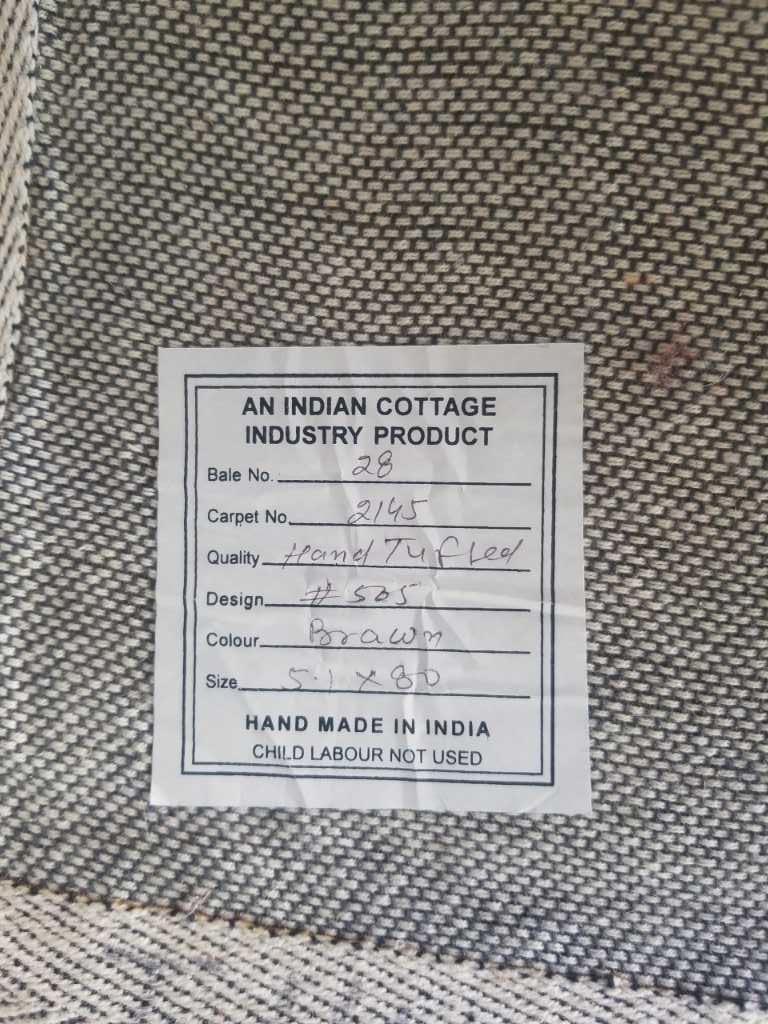 AN INDIAN COTTAGE
INDUSTRY PRODUCT
Bale No. 28
Carpet No. 2145
Quality Hand Tufted
Design #505
Colour Brawn
Size 5.1 x 80
HAND MADE IN INDIA
CHILD LABOUR NOT USED